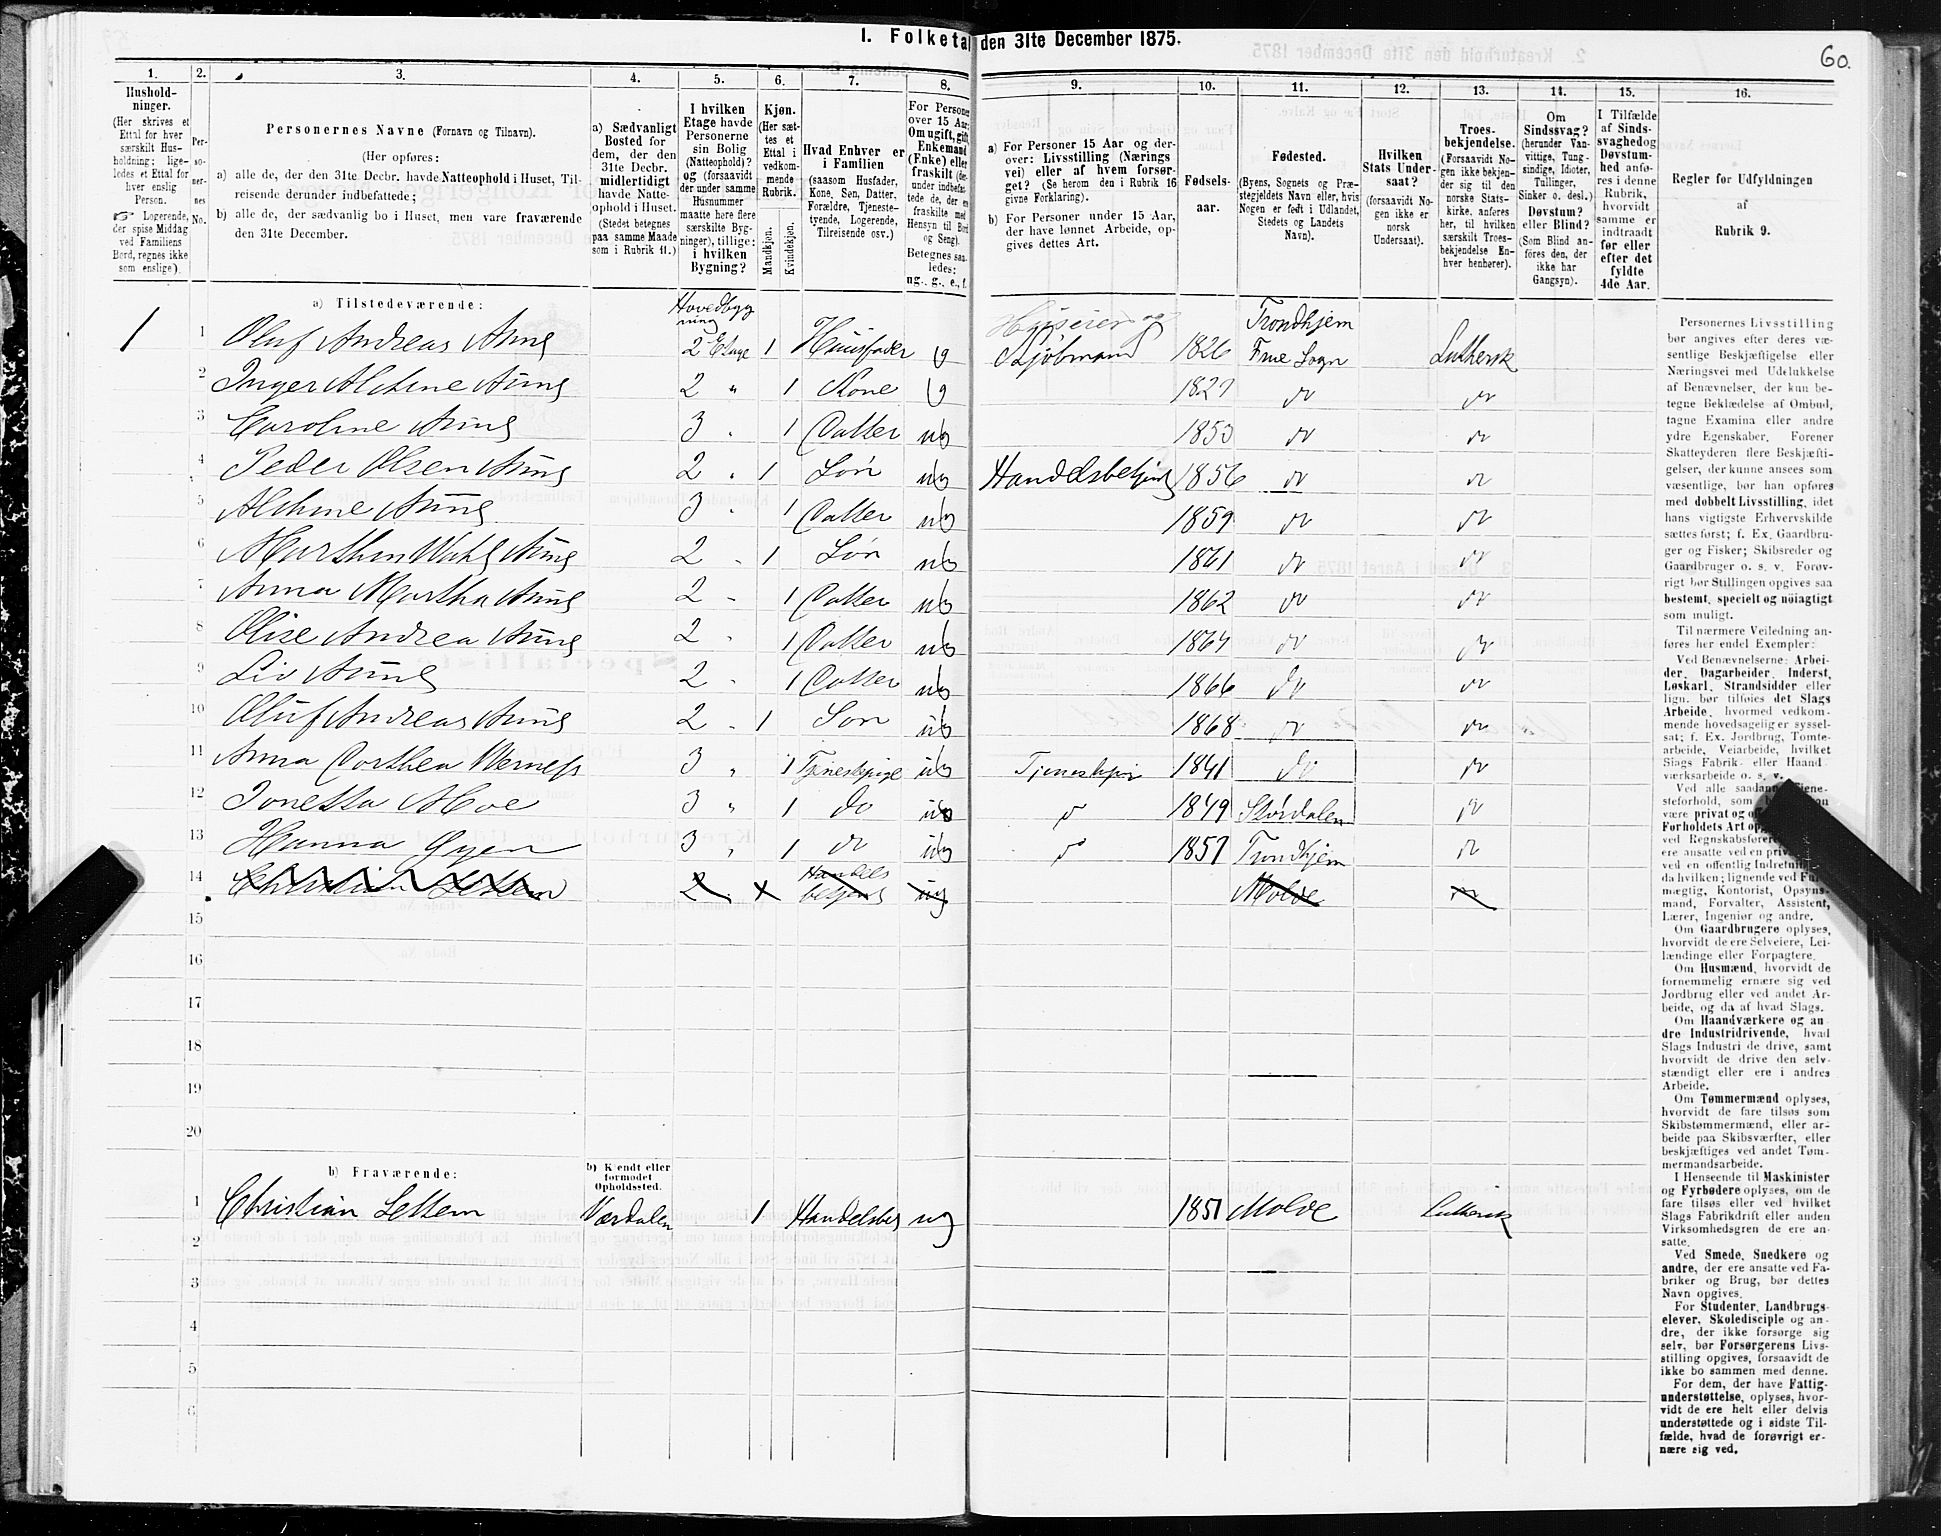 I. Folketal den 31te December 1875.
60.
1.
2.
3.
4.
5.
6.
7.
8.
9.
10.
11.
12.
13.
14.
15.
16.
Husholdninger.
(Her skrives et
Ettal for hver
særskilt Husholdning; ligeledes et Ettal for
hver enslig
Person.
☞ Logerende,
der spise Middag
ved Familiens
Bord, regnes ikke
som enslige).
Personernes No.
Personernes Navne (Fornavn og Tilnavn).
(Her opføres:
a) alle de, der den 31te Decbr. havde Natteophold i Huset, Tilreisende derunder indbefattede;
b) alle de, der sædvanlig bo i Huset, men vare fraværende
den 31te December.
a) Sædvanligt
Bosted for
dem, der den
31te Decbr.
midlertidigt
havde Natteophold i Huset.
(Stedet betegnes
paa samme Maade
som i Rubrik 11.)
I hvilken
Etage havde
Personerne
sin Bolig
(Natteophold)?
og (forsaavidt
der under samme
Husnummer
maatte høre flere
særskilte Bygninger), tillige:
i hvilken
Bygning?
Kjøn.
(Her sættes et
Ettal i
vedkommende
Rubrik.
Mandkjøn.
Kvindekjøn.
Hvad Enhver er
i Familien
(saasom Husfader,
Kone, Søn, Datter,
Forældre, Tjenestetyende, Logerende,
Tilreisende osv.)
For Personer
over 15 Aar:
Om ugift, gift,
Enkemand
(Enke) eller
fraskilt
Betegnes saaledes:
ug., g., e., f.
a) For Personer 15 Aar og derover: Livsstilling (Næringsvei) eller af hvem forsørget? (Se herom den i Rubrik 16
givne Forklaring).
b) For Personer under 15 Aar,
der have lønnet Arbeide, opgives dettes Art.
Fødselsaar.
Fødested.
(Byens, Sognets og Præstegjeldets Navn eller, hvis
Nogen er født i Udlandet,
Stedets og Landets
Navn).
Hvilken
Stats Undersaat?
(forsaavidt Nogen ikke er
norsk
Undersaat).
Troesbekjendelse.
(Forsaavidt Nogen ikke bekjender sig til den
norske Statskirke, anføres
her, til hvilken
særskilt Troesbekjendelse Enhver henhører).
Om
Sindssvag?
(herunder Vanvittige, Tungsindige, Idioter,
Tullinger,
Sinker o. desl.)
Døvstum?
eller Blind?
(Som Blind anføres den, der
ikke har
Gangsyn).
I Tilfælde
af Sindssvaghed og
Døvstumhed anføres i denne
Rubrik,
hvorvidt
samme er
indtraadt
før eller
efter det
fyldte
4de Aar.
Regler for Udfyldningen
af
Rubrik 9.
a) Tilstedeværende:
Hovedbygning
1
1 Oluf Andreas Aune 2 Etage 1 Huusfader g Huseier og Kjøbmand 1826 Trondhjem Frue Sogn Luthersk
2 Inger Alchine Aune 2 " 1 Kone g 1827 do do
3 Caroline Aune 3 1 Datter ug 1853 do do
4 Peder Olsen Aune 2 1 Søn ug Handelsbetjent 1856 do do
5 Alchine Aune 3 1 Datter ug 1859 do do
6 Marthin Wahl Aune 2 1 Søn ug 1861 do do
7 Anna Martha Aune 2 1 Datter ug 1862 do do
8 Olise Andrea Aune 2 1 Datter ug 1864 do do
9 Liv Aune 2 1 Datter ug 1866 do do
10 Oluf Andreas Aune 2 1 Søn ug 1868 do do
11 Anna Dorthea Werness 3 " 1 Tjenestepige ug Tjenestepige 1841 do do
12 Jonetta Moe 3 " 1 do ug do 1849 Størdalen do
13 Hanna Gjen 3 " 1 do ug do 1857 Trondhjem do
14 Christian Lettem 2 Handelsbetjent ug Molde do
15
16
17
18
19
20
b) Fraværende:
b) Kjendt eller
formodet
Opholdssted.
1 Christian Lettem Værdalen 1 Handelsbetj ug 1851 Molde Luthersk
2
3
4
5
6
Personernes Livsstilling
bør angives efter deres væsentlige Beskjæftigelse eller
Næringsvei med Udelukkelse
af Benævnelser, der kun betegne Beklædelse af Ombud,
tagne Examina eller andre
ydre Egenskaber. Forener
Skatteyderen flere Beskjæftigelser, der kunne ansees som
væsentlige, bør han opføres
med dobbelt Livsstilling, idet
hans vigtigste Erhvervskilde
sættes først; f. Ex. Gaardbruger og Fisker; Skibsreder og
Gaardbruger o. s. v. Forøvrigt bør Stillingen opgives saa
bestemt, specielt og nöiagtigt
som muligt.
Til nærmere Veiledning anføres her endel Exempler:
Ved Benævnelserne: Arbeider, Dagarbeider, Inderst,
Løskarl, Strandsidder eller
lign. bør tilføies det Slags
Arbeide, hvormed vedkommende hovedsagelig er sysselsat; f. Ex. Jordbrug, Tomtearbeide, Veiarbeide, hvilket
Slags Fabrik- eller Haandværksarbeide o. s. v.
Ved alle saadanne Tjenesteforhold, som
være privat og
Forholdets Art
ved Regnskabsførere
ere ansatte ved en
ved en offentlig Indretning
da hvilken; lignende ved
mægtig, Kontorist, Opsynsmand, Forvalter, Assistent,
Lærer, Ingeniør og andre.
Om Gaardbrugere oplyses,
hvorvidt de ere Selveiere, Leilændinge eller Forpagtere.
Om Husmænd, hvorvidt de
fornemmelig ernære sig ved
Jordbrug eller ved andet Arbeide, og da af hvad Slags.
Om Haandværkere og andre Industridrivende, hvad
Slags Industri de drive, samt
hvorvidt de drive den selvstændigt eller ere i andres
Arbeide.
Om Tømmermænd oplyses,
hvorvidt de fare tilsøs som
Skibstømmermænd, eller arbeide paa Skibsværfter, eller
beskjæftiges ved andet Tømmermandsarbeide.
I Henseende til Maskinister
og Fyrbødere oplyses, om de
fare tilsøs eller ved hvilket
Slags Fabrikdrift eller anden
Virksomhedsgren de ere ansatte.
Ved Smede, Snedkere og
andre, der ere ansatte ved Fabriker og Brug, bør dettes
Navn opgives.
For Studenter, Landbrugselever, Skoledisciple og andre, der ikke forsørge sig
selv, bør Forsørgerens Livsstilling opgives, forsaavidt de
ikke bo sammen med denne.
For dem, der have Fattigunderstøttelse, oplyses, hvorvidt de ere helt eller delvis
understøttede og i sidste Tilfælde, hvad de forøvrigt ernære sig ved.